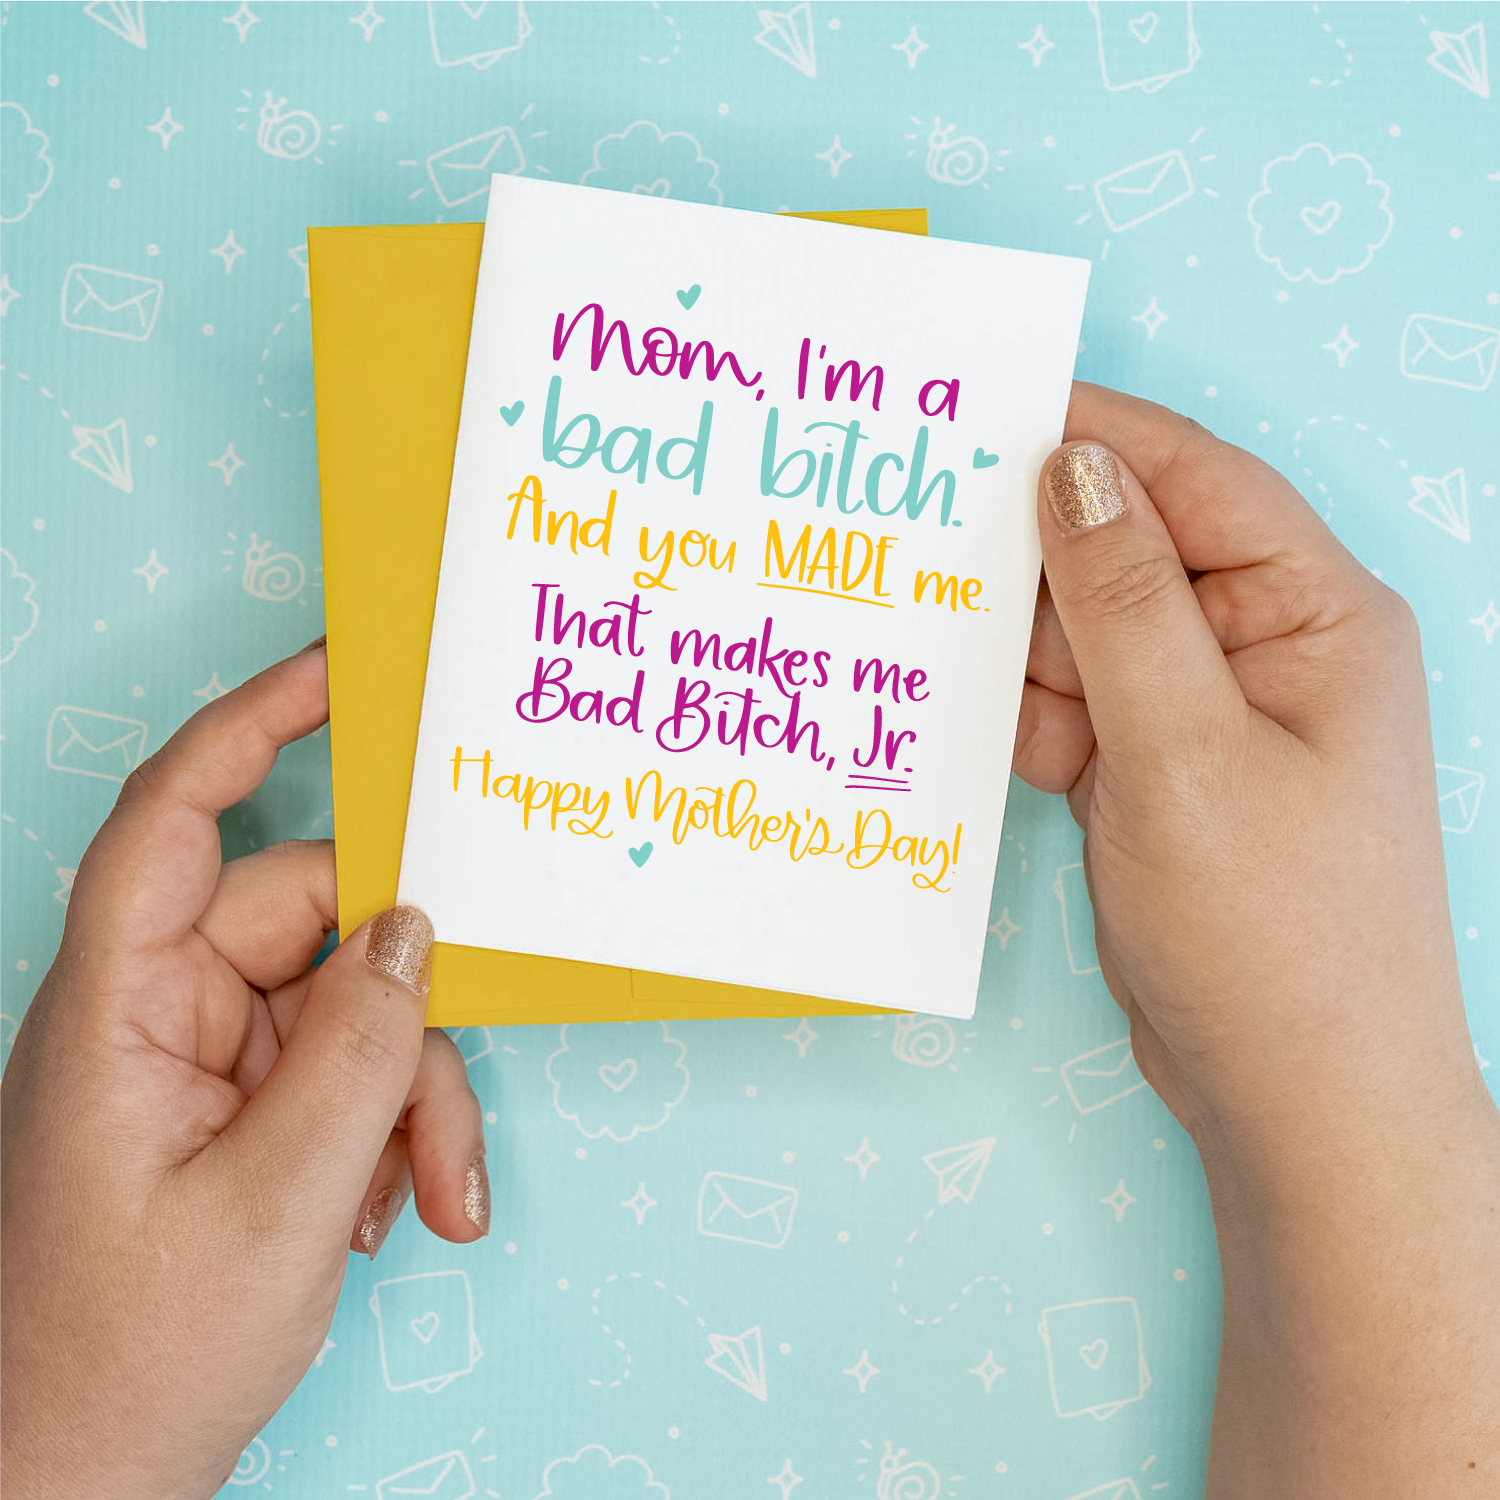 Mom, I'm a
bad bitch.
And you MADE me.
That makes me
Bad Bitch, Jr.
Happy Mother's Day!